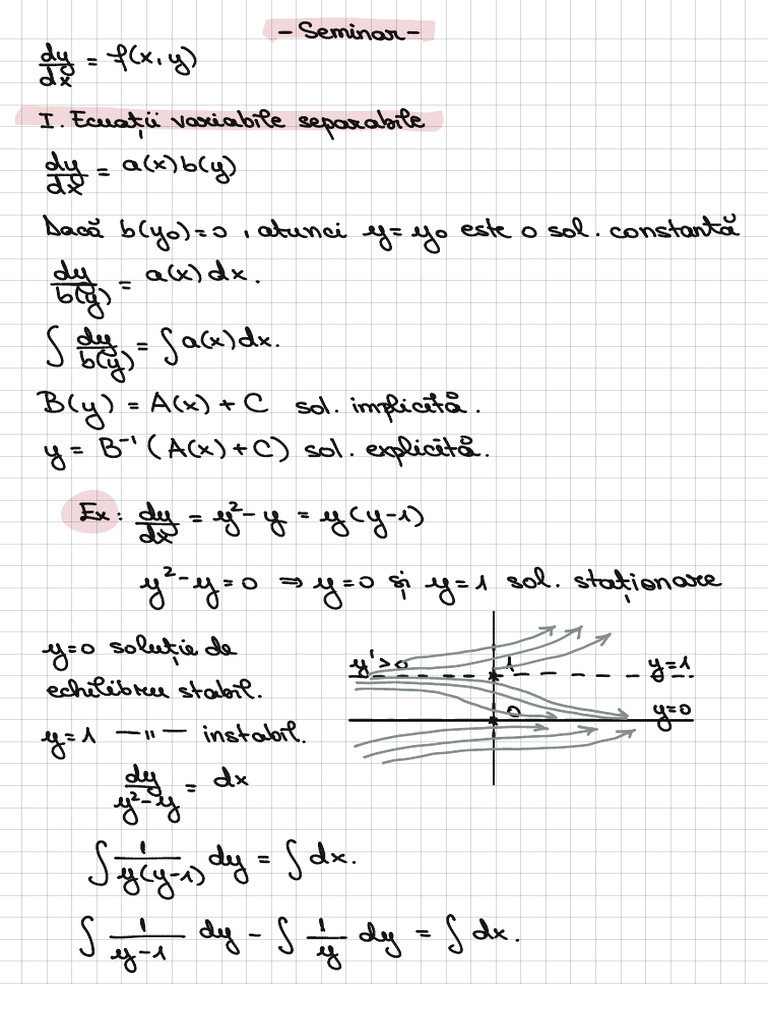 - Seminar -
dy/dx = f(x, y)
I. Ecuații variabile separabile
dy/dx = a(x) b(y)
Dacă b(y₀) = 0, atunci y = y₀ este o sol. constantă
dy/b(y) = a(x) dx.
∫ dy/b(y) = ∫ a(x) dx.
B(y) = A(x) + C sol. implicită.
y = B⁻¹ (A(x) + C) sol. explicită.
Ex: dy/dx = y² - y = y(y-1)
y² - y = 0 ⇒ y = 0 și y = 1 sol. staționare
y=0 soluție de
echilibru stabil.
y=1 —11— instabil.
y'>0 1 y=1
0 y=0
dy/y²-y = dx
∫ 1/y(y-1) dy = ∫ dx.
∫ 1/y-1 dy - ∫ 1/y dy = ∫ dx.